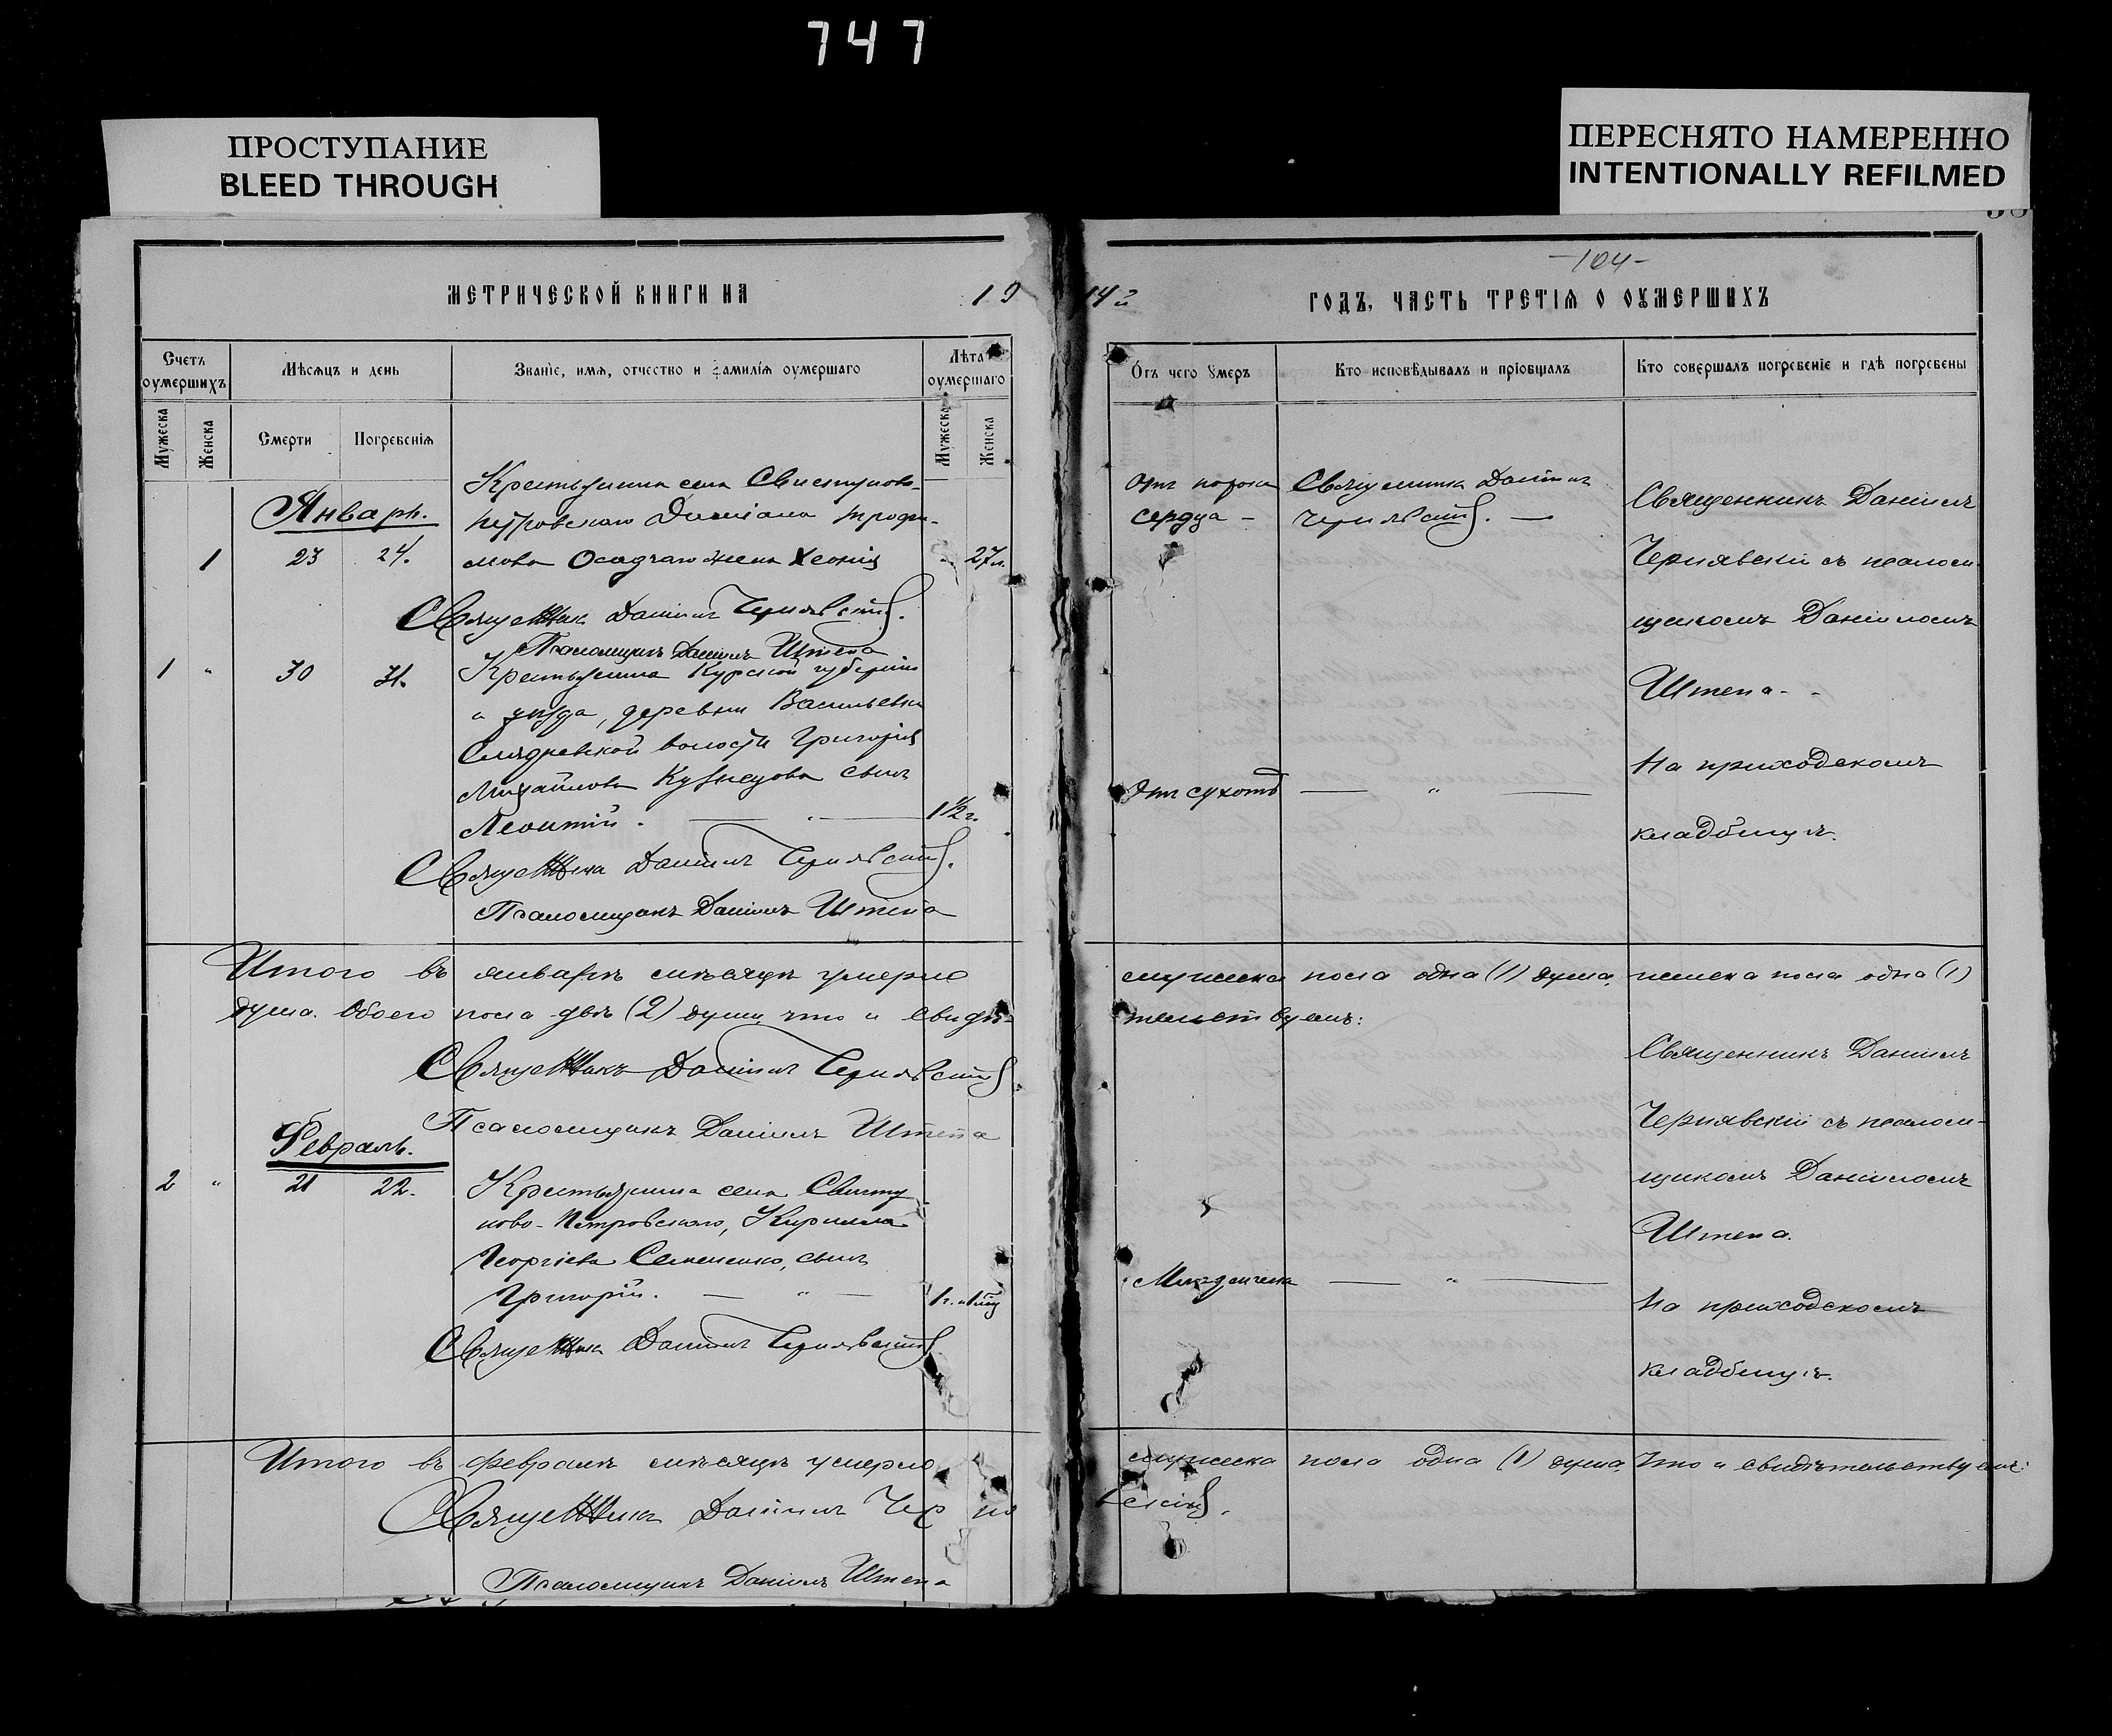 747
ПРОСТУПАНИЕ
BLEED THROUGH
ПЕРЕСНЯТО НАМЕРЕННО
INTENTIONALLY REFILMED
-104-
МЕТРИЧЕСКОЙ КНИГИ НА 19
14 г
ГОДЪ, ЧАСТЬ ТРЕТІѦ О ОУМЕРШИХЪ
Счетъ оумершихъ
Мѣсяцъ и день
Званіе, имѧ, отчество и фамилїѧ оумершаго
Лѣта оумершаго
Отъ чего оумеръ
Кто исповѣдывалъ и прїобщалъ
Кто совершалъ погребенїе и гдѣ погребены
Мужеска
Женска
Смерти
Погребенїѧ
Мужеска
Женска
Январь.
1 23 24.
Крестьянина села Свистуново-
Петровскаго Дамiана Трофи-
мова Осадчаго жена Ксенія
27 л.
Отъ порока
сердца -
Священникъ Даніилъ
Чернявскій. —
Священникъ Даніилъ Чернявскій.
Псаломщикъ Даніилъ Штепа
Священникъ Даніилъ
Чернявскій съ псалом-
щикомъ Даніиломъ
Штепа. -
На приходскомъ
кладбищѣ.
1 " 30 31.
Крестьянина Курской губерніи
и уѣзда, деревни Васильевки
волости Григорія
Михайлова Кузнецова сынъ
Леонтій. — " —
1½ г.
Отъ сухотъ
— " —
Священникъ Даніилъ Чернявскій.
Псаломщикъ Даніилъ Штепа
Итого въ январѣ мѣсяцѣ умерло мужеска пола одна (1) душа, женска пола одна (1)
душа. Обоего пола двѣ (2) души, что и свидѣ-
тельствуемъ:
Священникъ Даніилъ Чернявскій.
Псаломщикъ Даніилъ Штепа
Февраль.
2 " 21 22.
Крестьянина села Свисту
ново-Петровскаго, Кирилла
Георгіева Семененко, сынъ
Григорій. — " —
Младенческая
— " —
Священникъ Даніилъ Чернявскій
Священникъ Даніилъ
Чернявскій съ псалом-
щикомъ Даніиломъ
Штепа.
На приходскомъ
кладбищѣ.
Итого въ февралѣ мѣсяцѣ умерло мужеска пола одна (1) душа, Что и свидѣтельствуемъ:
Священникъ Даніилъ Чернявскій.
Псаломщикъ Даніилъ Штепа